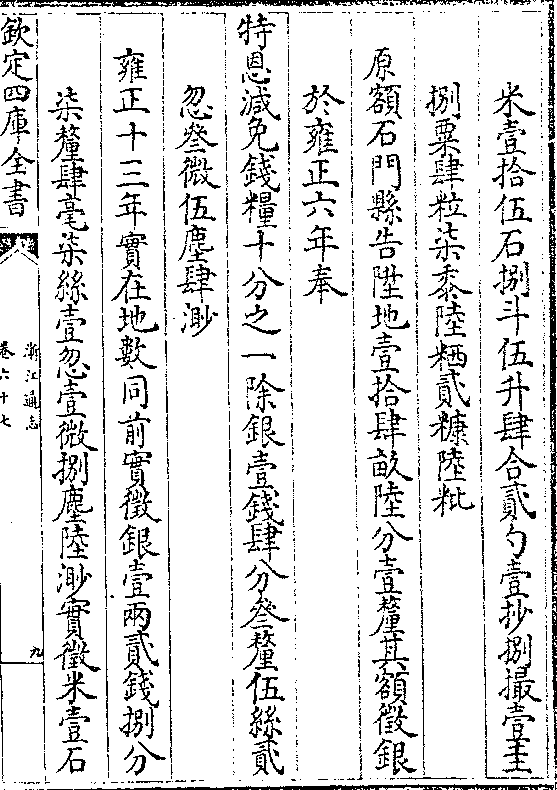 米壹拾伍石捌斗伍升肆合貳勺壹抄捌撮壹圭
捌粟肆粒柒黍陸粞貳糠陸粃
原額石門縣告陞地壹拾肆畝陸分壹釐其額徵銀
於雍正六年奉
特恩減免錢糧十分之一除銀壹錢肆分叄釐伍絲貳
忽叄微伍塵肆渺
雍正十三年實在地數同前實徵銀壹兩貳錢捌分
柒釐肆毫柒絲壹忽壹微捌塵陸渺實徵米壹石
欽定四庫全書
浙江通志
卷六十七
九